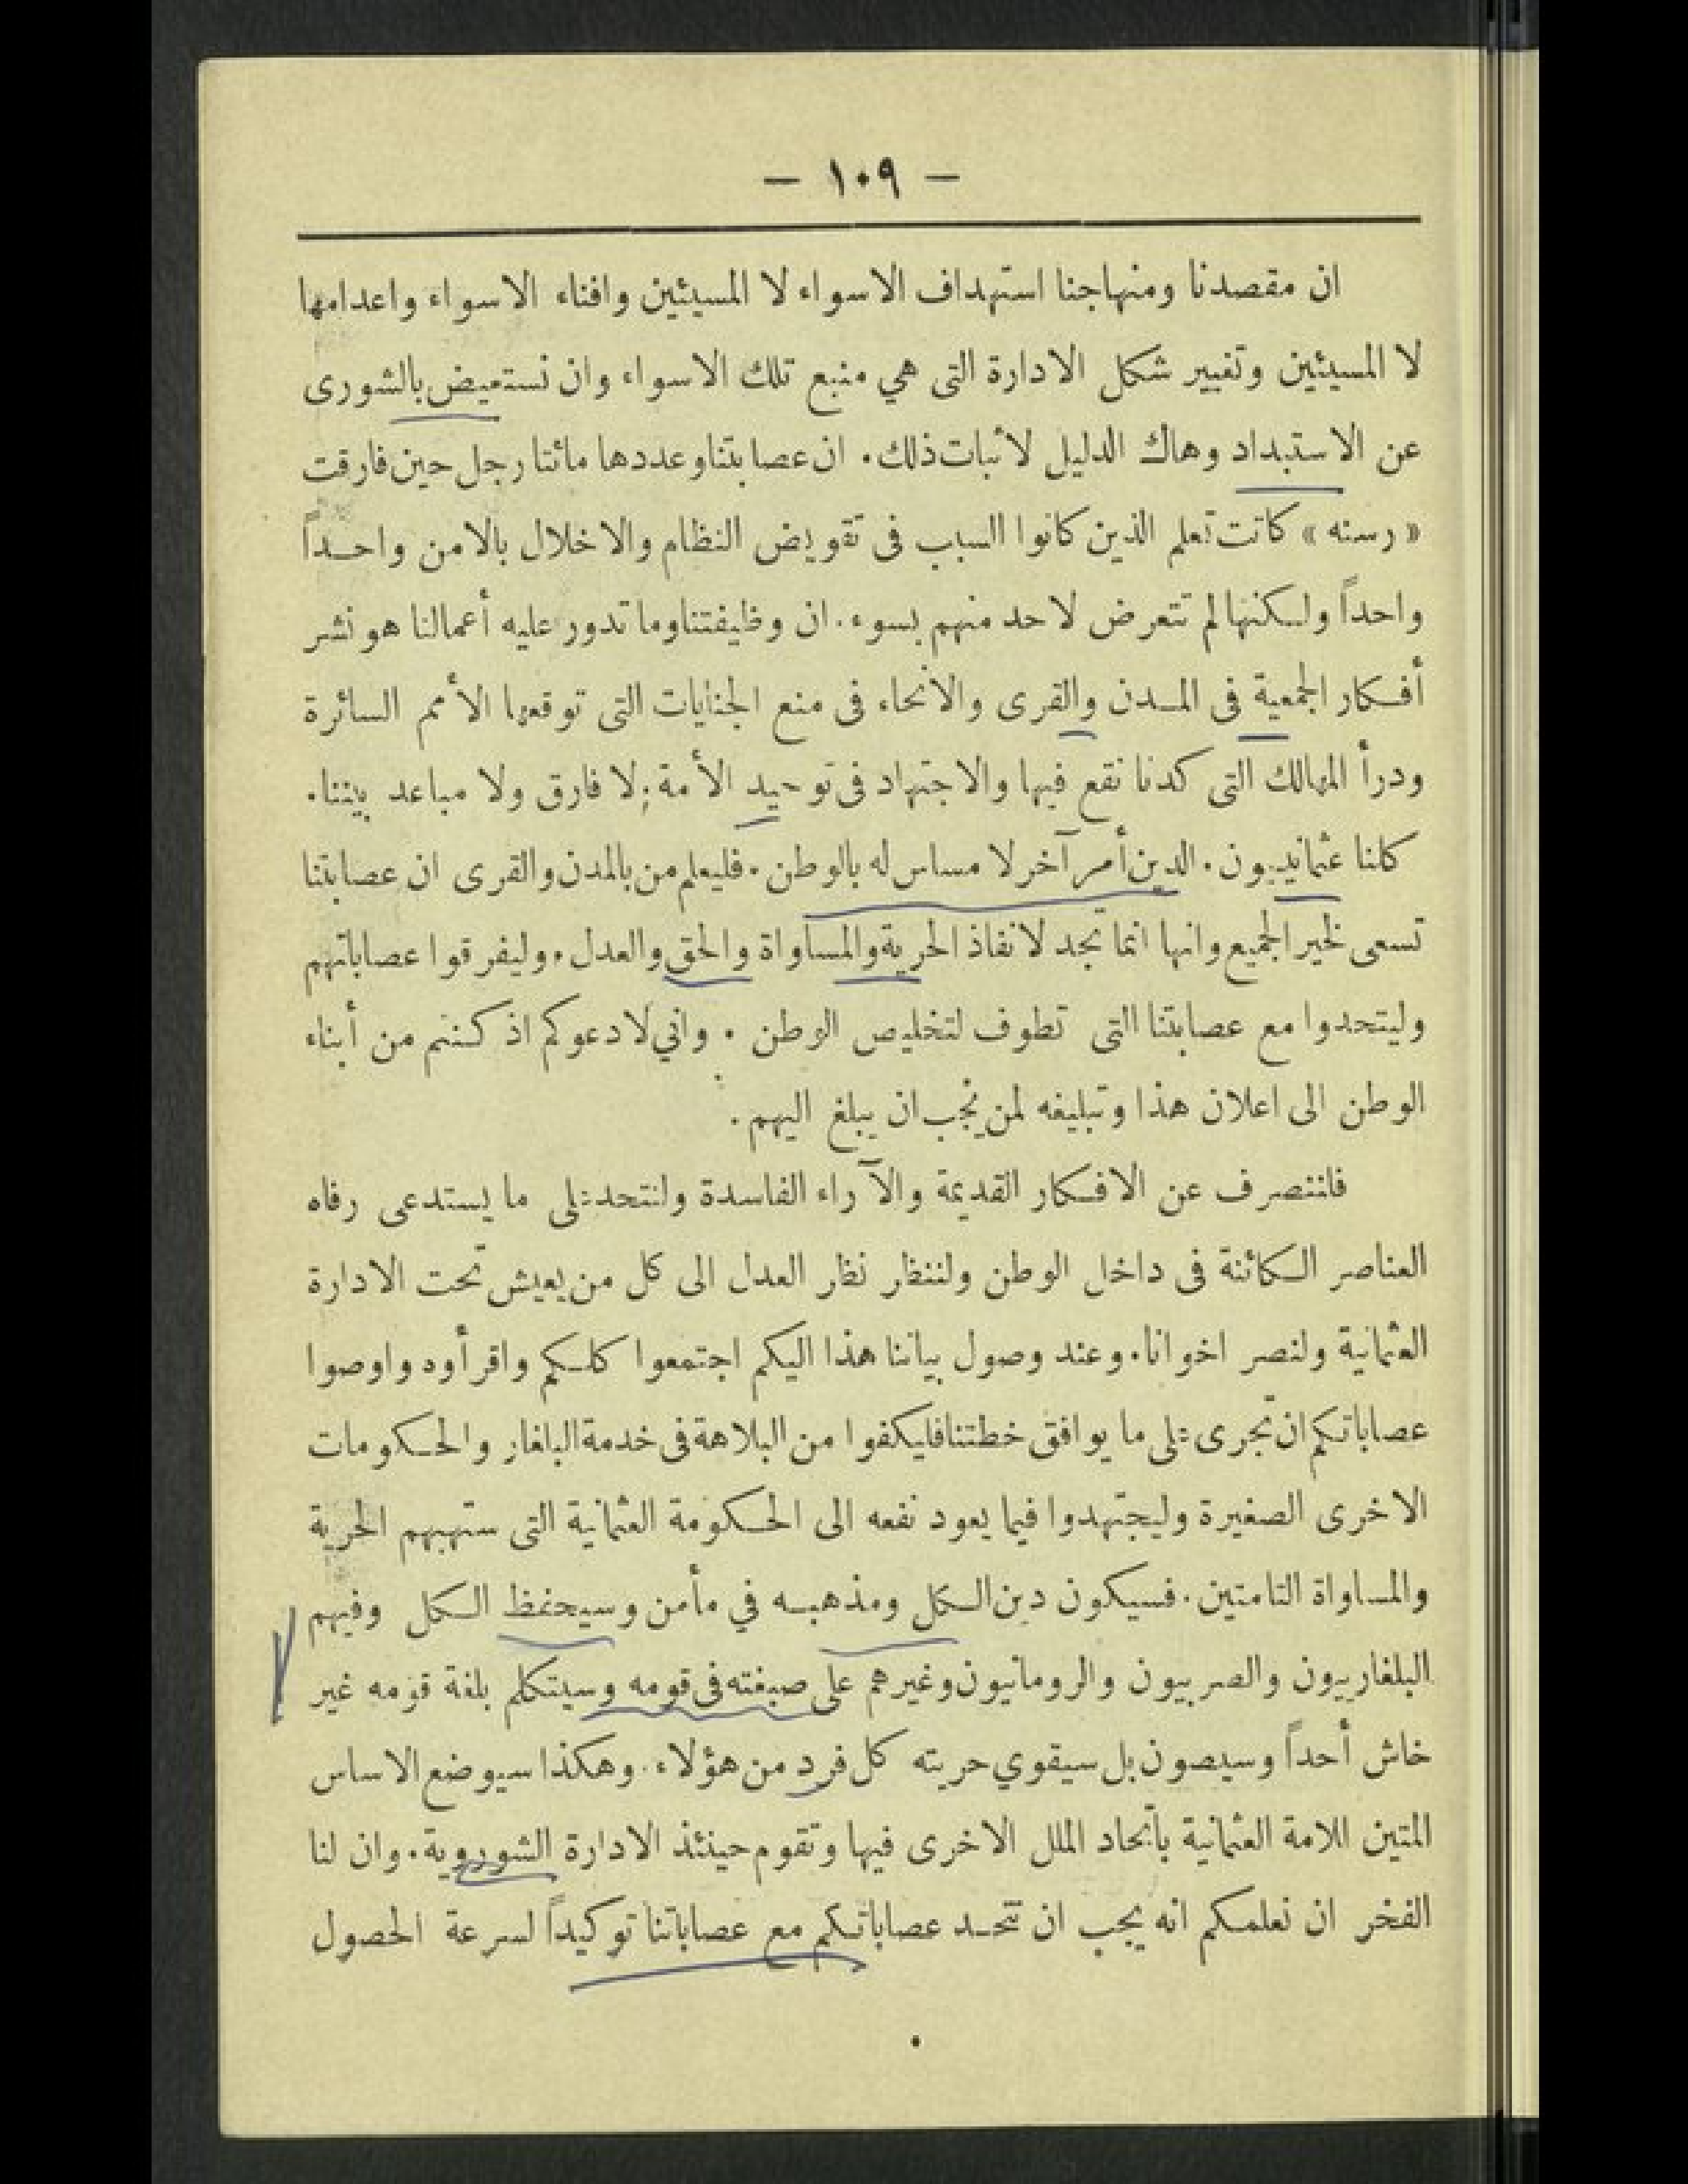 — ١٠٩ —
ان مقصدنا ومنهاجنا استهداف الاسواء لا المسيئين وافناء الاسواء واعدامها
لا المسيئين وتغيير شكل الادارة التى هي منبع تلك الاسواء وان نستعيض بالشورى
عن الاستبداد وهاك الدليل لاثبات ذلك. ان عصابتنا وعددها مائتا رجل حين فارقت
« رسنه » كانت تعلم الذين كانوا السبب فى تقويض النظام والاخلال بالامن واحداً
واحداً ولكنها لم تتعرض لاحد منهم بسوء. ان وظيفتنا وما تدور عليه أعمالنا هو نشر
أفكار الجمعية فى المدن والقرى والانحاء فى منع الجنايات التى توقعها الأمم السائرة
ودرأ المهالك التى كدنا نقع فيها والاجتهاد فى توحيد الأمة؛ لا فارق ولا مباعد بيننا.
كلنا عثمانيون. الدين أمر آخر لا مساس له بالوطن. فليعلم من بالمدن والقرى ان عصابتنا
تسعى لخير الجميع وانها انما تجد لانفاذ الحرية والمساواة والحق والعدل. وليفرقوا عصاباتهم
وليتحدوا مع عصابتنا التى تطوف لتخليص الوطن. واني لادعوكم اذ كنتم من أبناء
الوطن الى اعلان هذا وتبليغه لمن يجب ان يبلغ اليهم.
فلننصرف عن الافكار القديمة والآراء الفاسدة ولنتحد على ما يستدعى رفاه
العناصر الكائنة فى داخل الوطن ولننظر نظر العدل الى كل من يعيش تحت الادارة
العثمانية ولنصر اخوانا. وعند وصول بياننا هذا اليكم اجتمعوا كلكم واقرأوه واوصوا
عصاباتكم ان تجرى على ما يوافق خطتنا فليكفوا من البلاهة فى خدمة البلغار والحكومات
الاخرى الصغيرة وليجتهدوا فيما يعود نفعه الى الحكومة العثمانية التى ستهبهم الحرية
والمساواة التامتين. فسيكون دين الكل ومذهبه في مأمن وسيحتفظ الكل وفيهم
البلغاريون والصربيون والرومانيون وغيرهم على صبغته فى قومه وسيتكلم بلغة قومه غير
خاش أحداً وسيصون بل سيقوي حريته كل فرد من هؤلاء. وهكذا سيوضع الاساس
المتين للامة العثمانية باتحاد الملل الاخرى فيها وتقوم حينئذ الادارة الشوروية. وان لنا
الفخر ان نعلمكم انه يجب ان تتحد عصاباتكم مع عصاباتنا توكيداً لسرعة الحصول